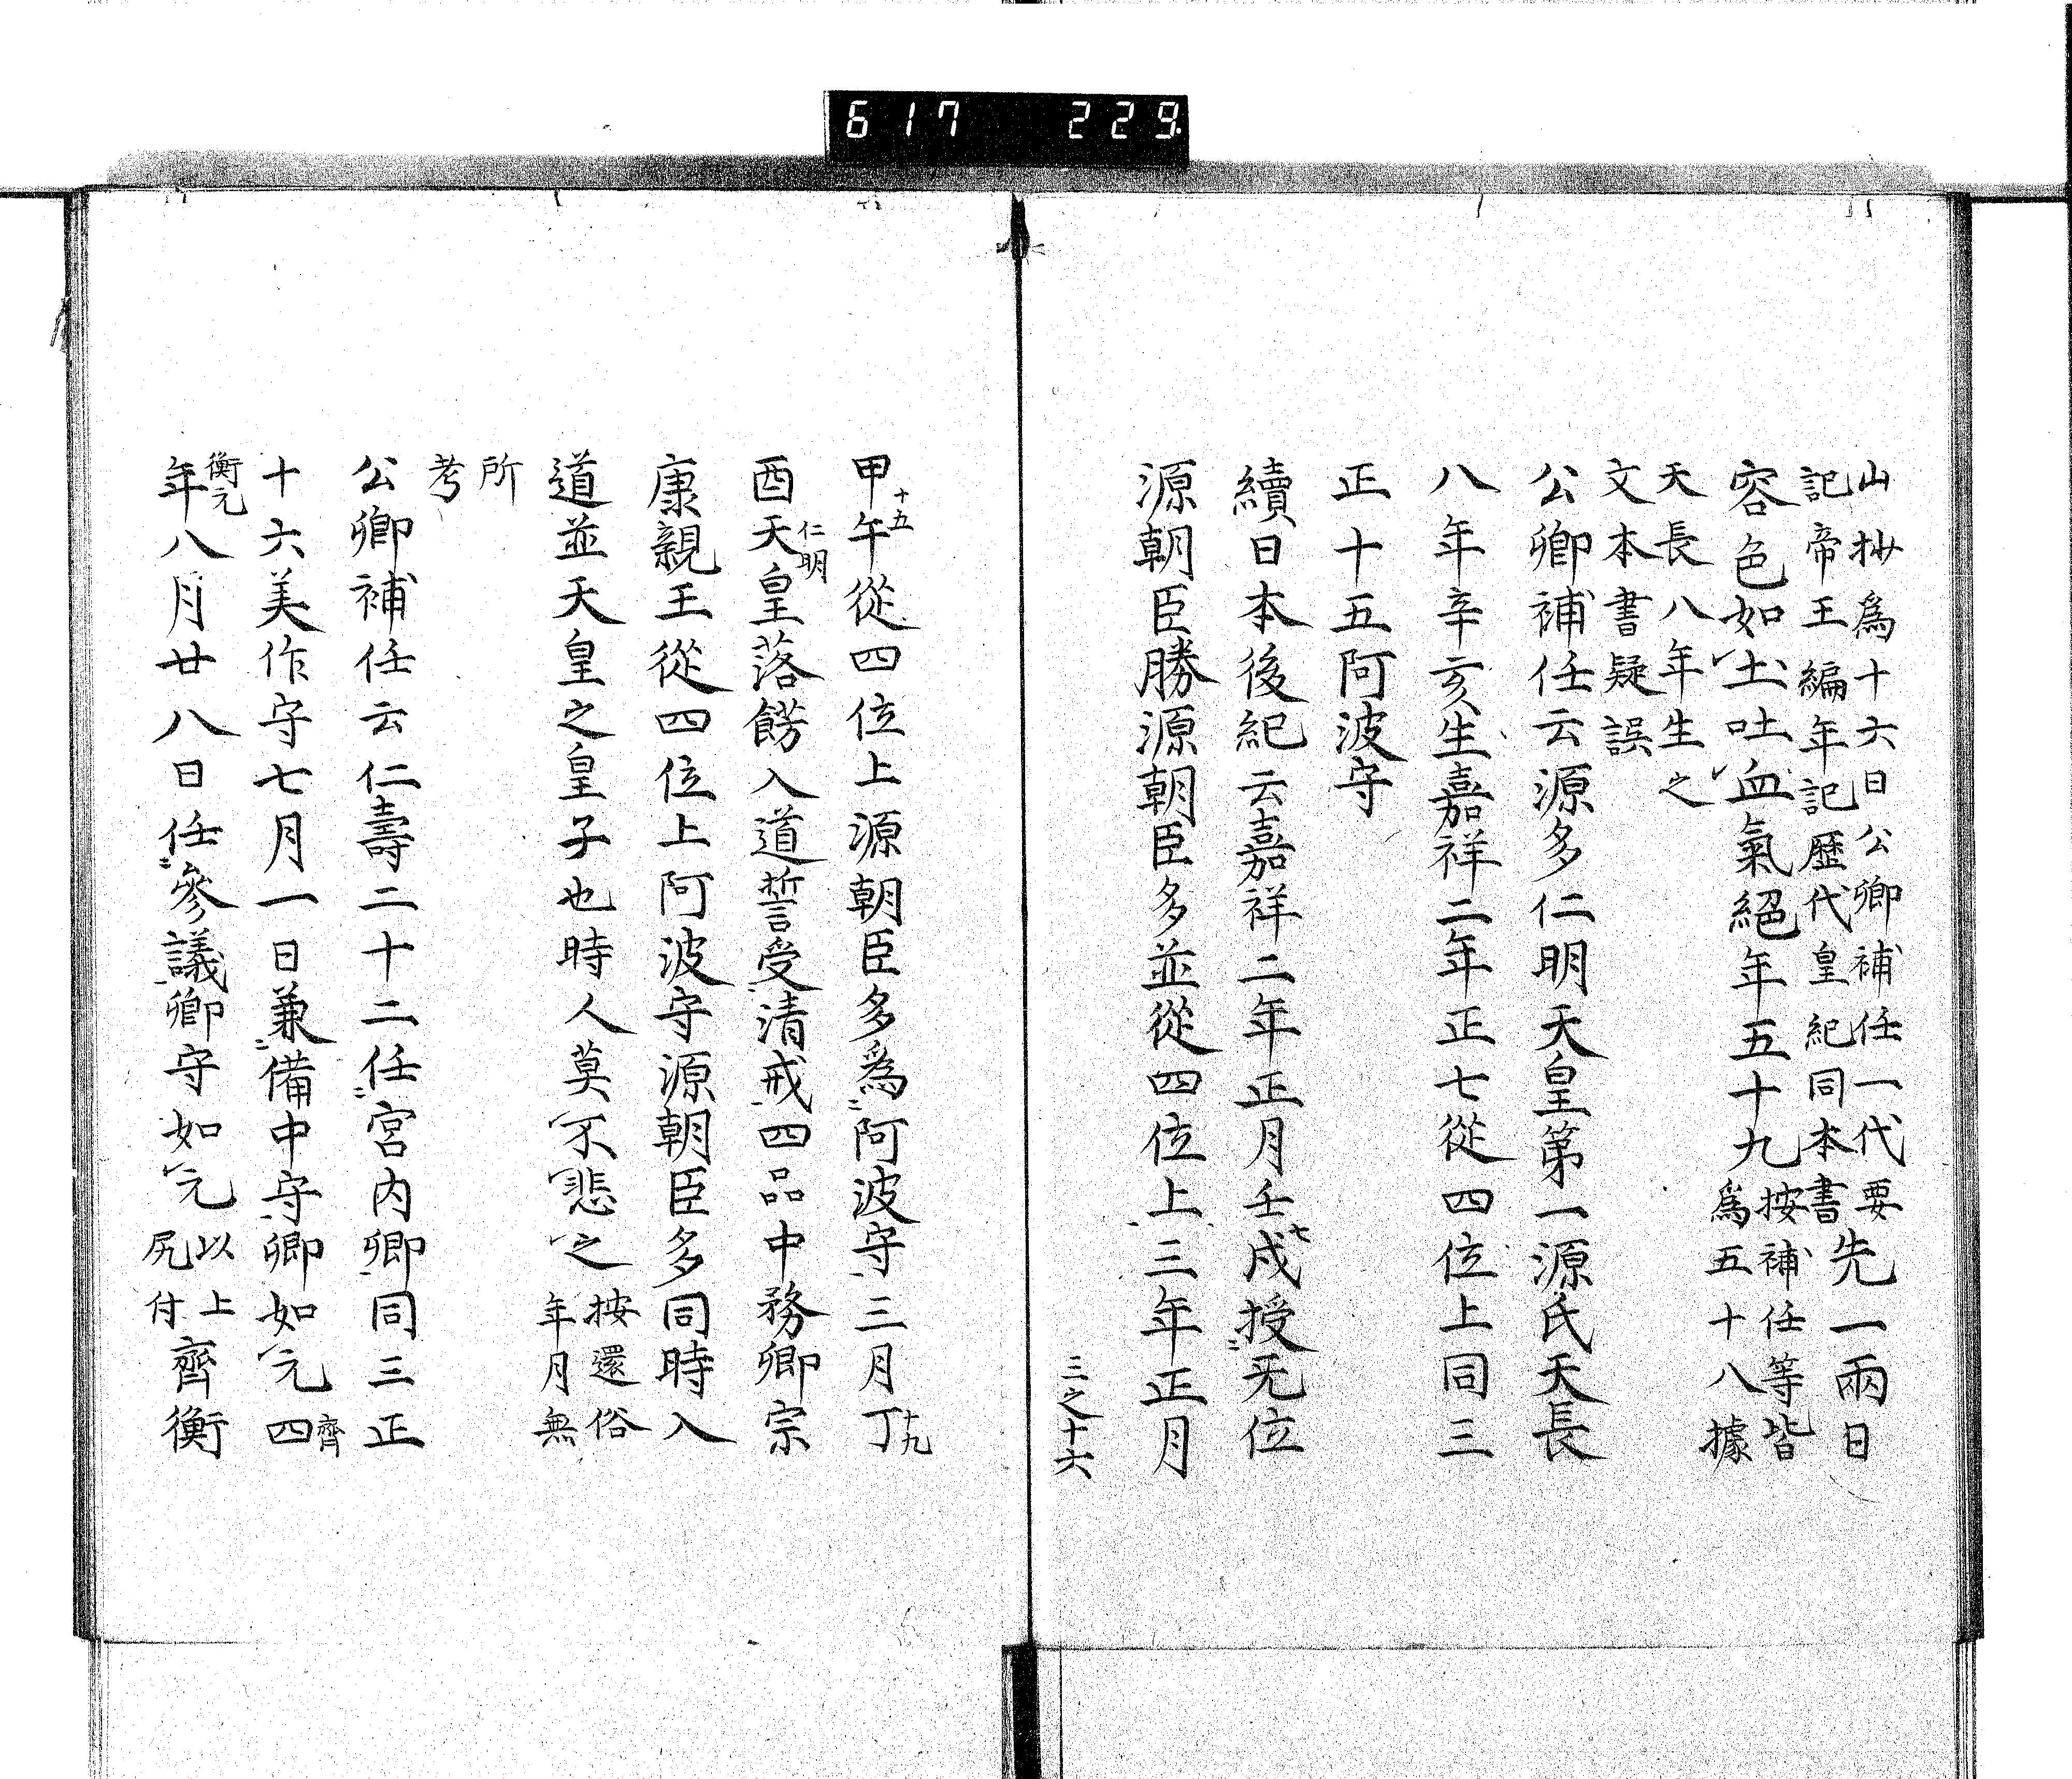 617 229
山抄爲十六日公卿補任一代要
記帝王編年記歷代皇紀同本書先一兩日
容色如土吐血氣絕年五十九按補任等皆
爲五十八據
天長八年生之
文本書疑誤
公卿補任云源多仁明天皇第一源氏天長
八年辛亥生嘉祥二年正七從四位上同三
正十五阿波守
續日本後紀云嘉祥二年正月壬戌七授无位
源朝臣勝源朝臣多並從四位上三年正月
三之十六
甲午十五從四位上源朝臣多爲阿波守三月丁十九
酉天皇仁明落餝入道誓受清戒四品中務卿宗
康親王從四位上阿波守源朝臣多同時入
道並天皇之皇子也時人莫不悲之按還俗
年月無
所
考
公卿補任云仁壽二十二任宮内卿同三正
十六美作守七月一日兼備中守卿如元四齊
衡元
年八月廿八日任參議卿守如元以上
尻付齊衡